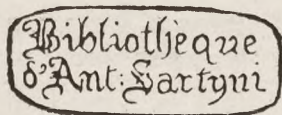 Bibliothèque
d'Ant: Sartyni